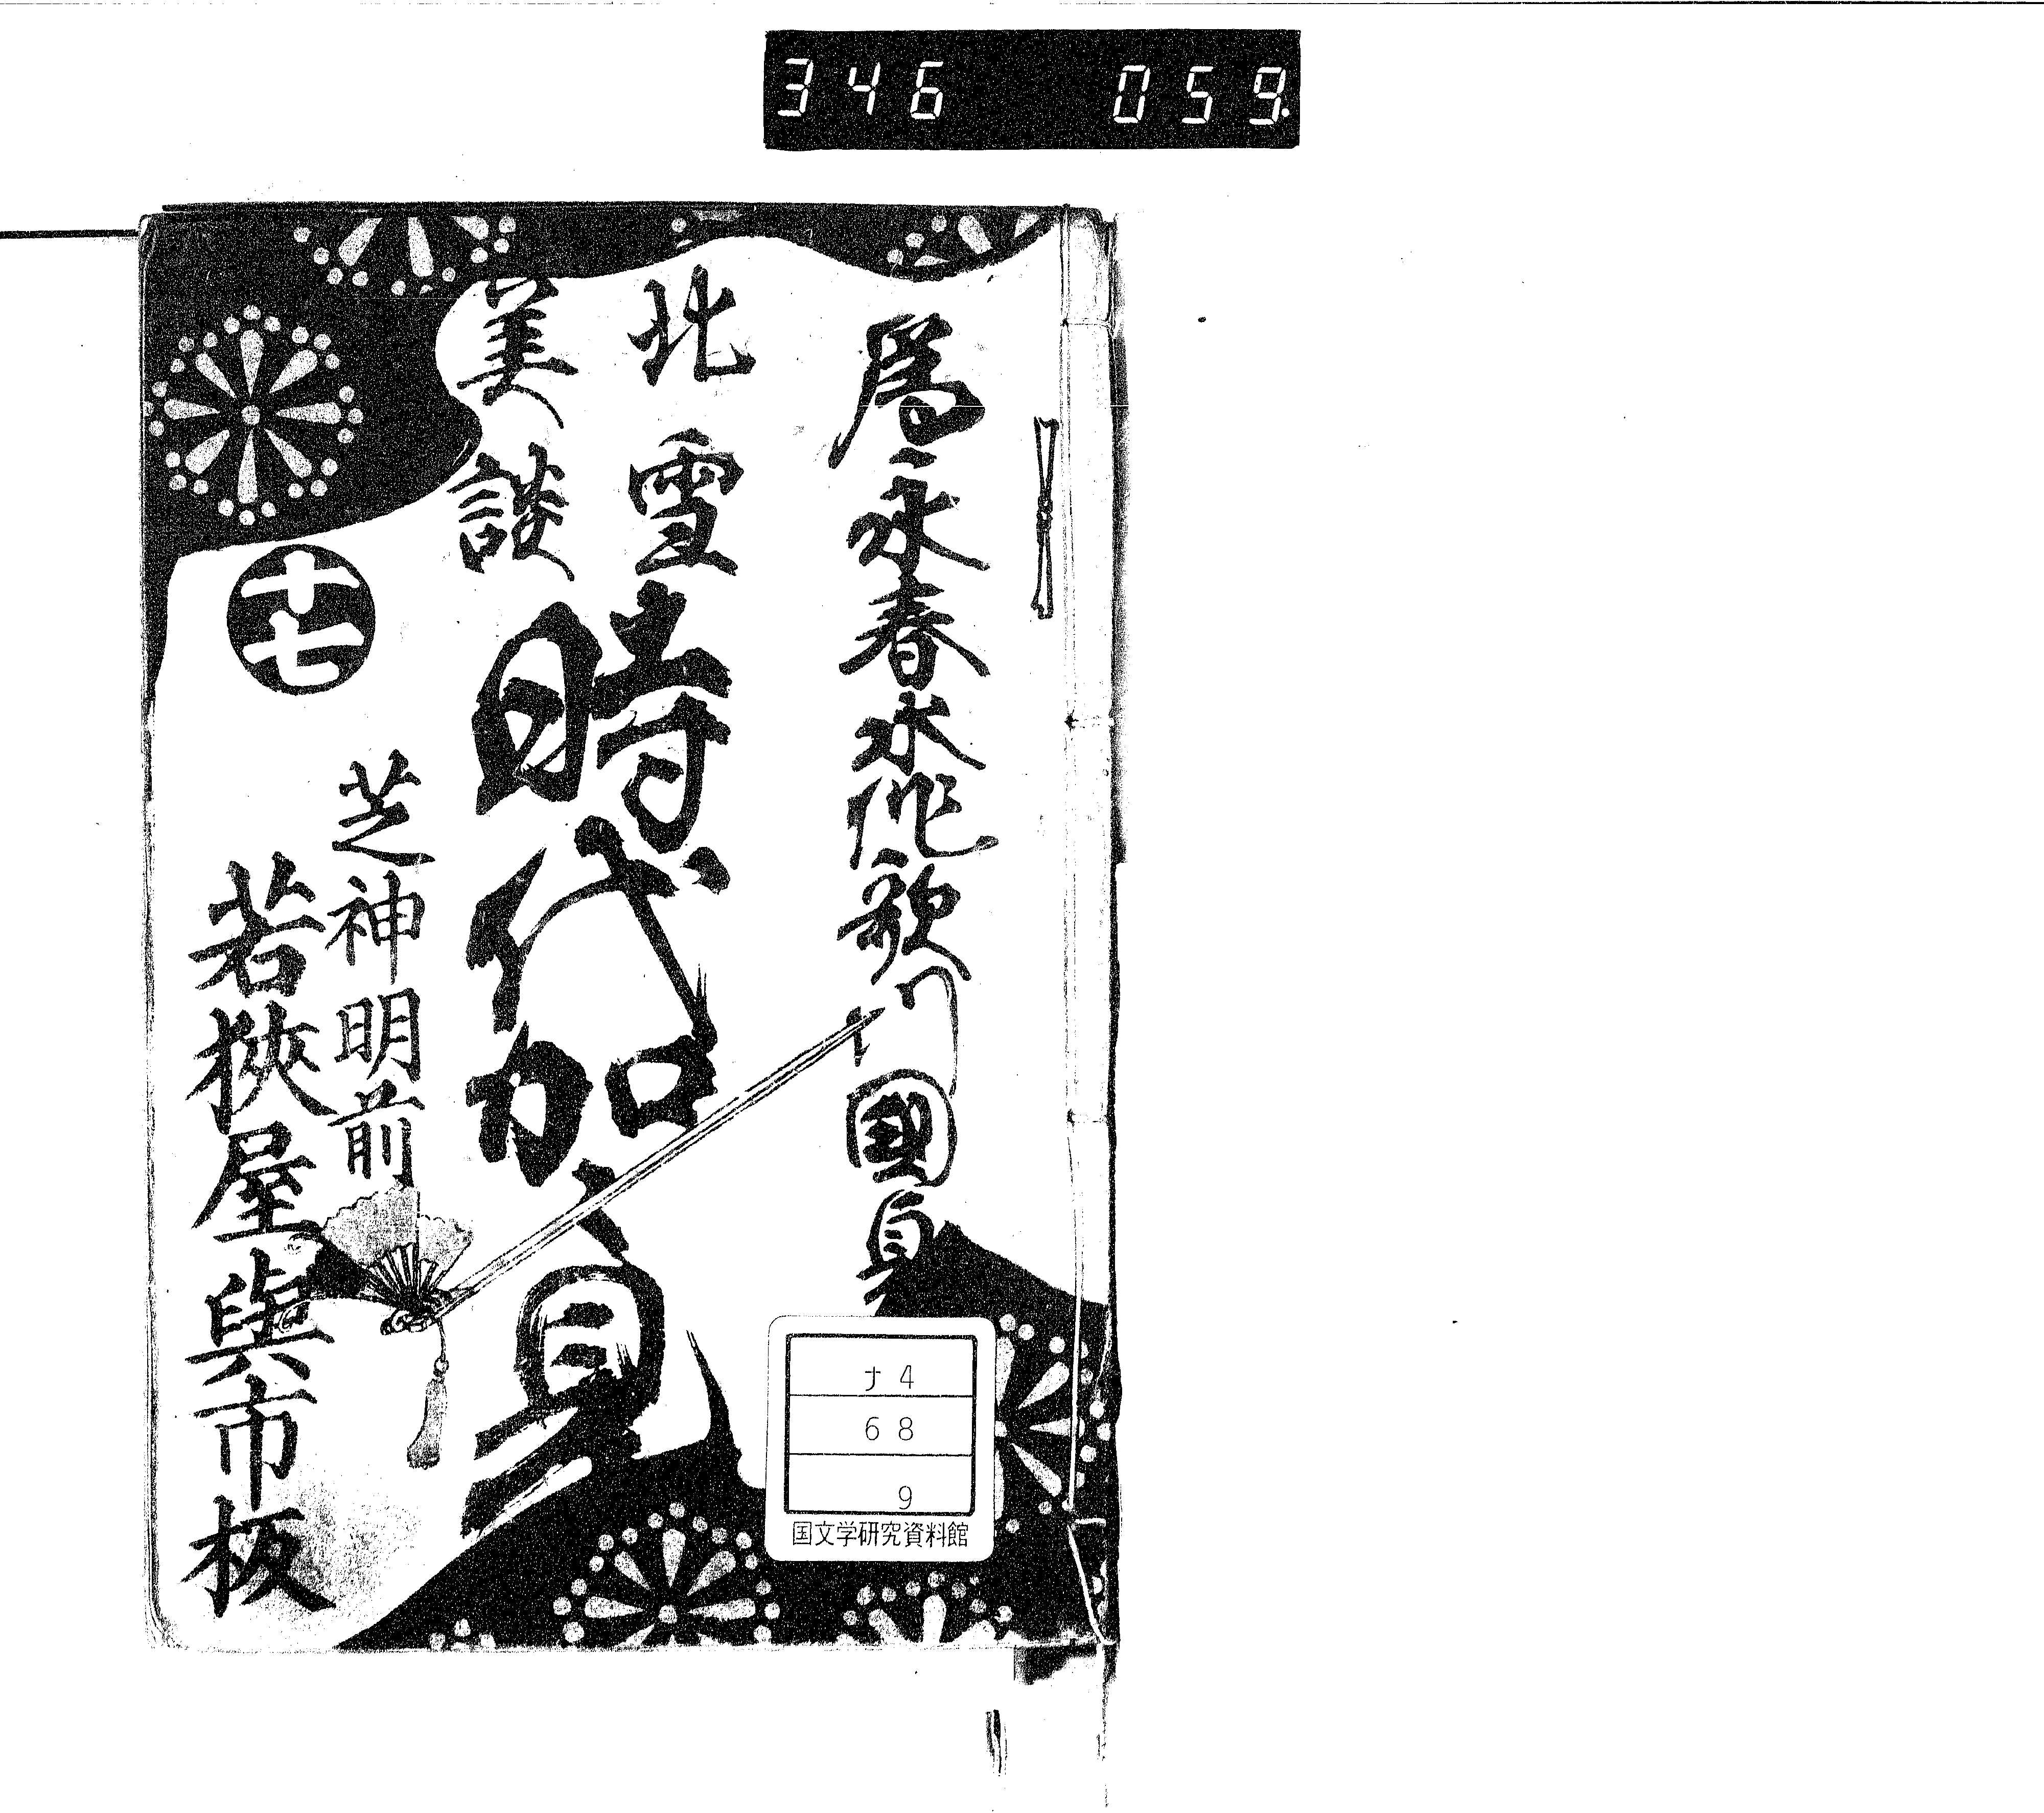 346 059
爲永春水作歌川國貞
北雪
美談
時代加々見
十七
芝神明前
若狹屋與市板
ナ4
68
9
国文学研究資料館